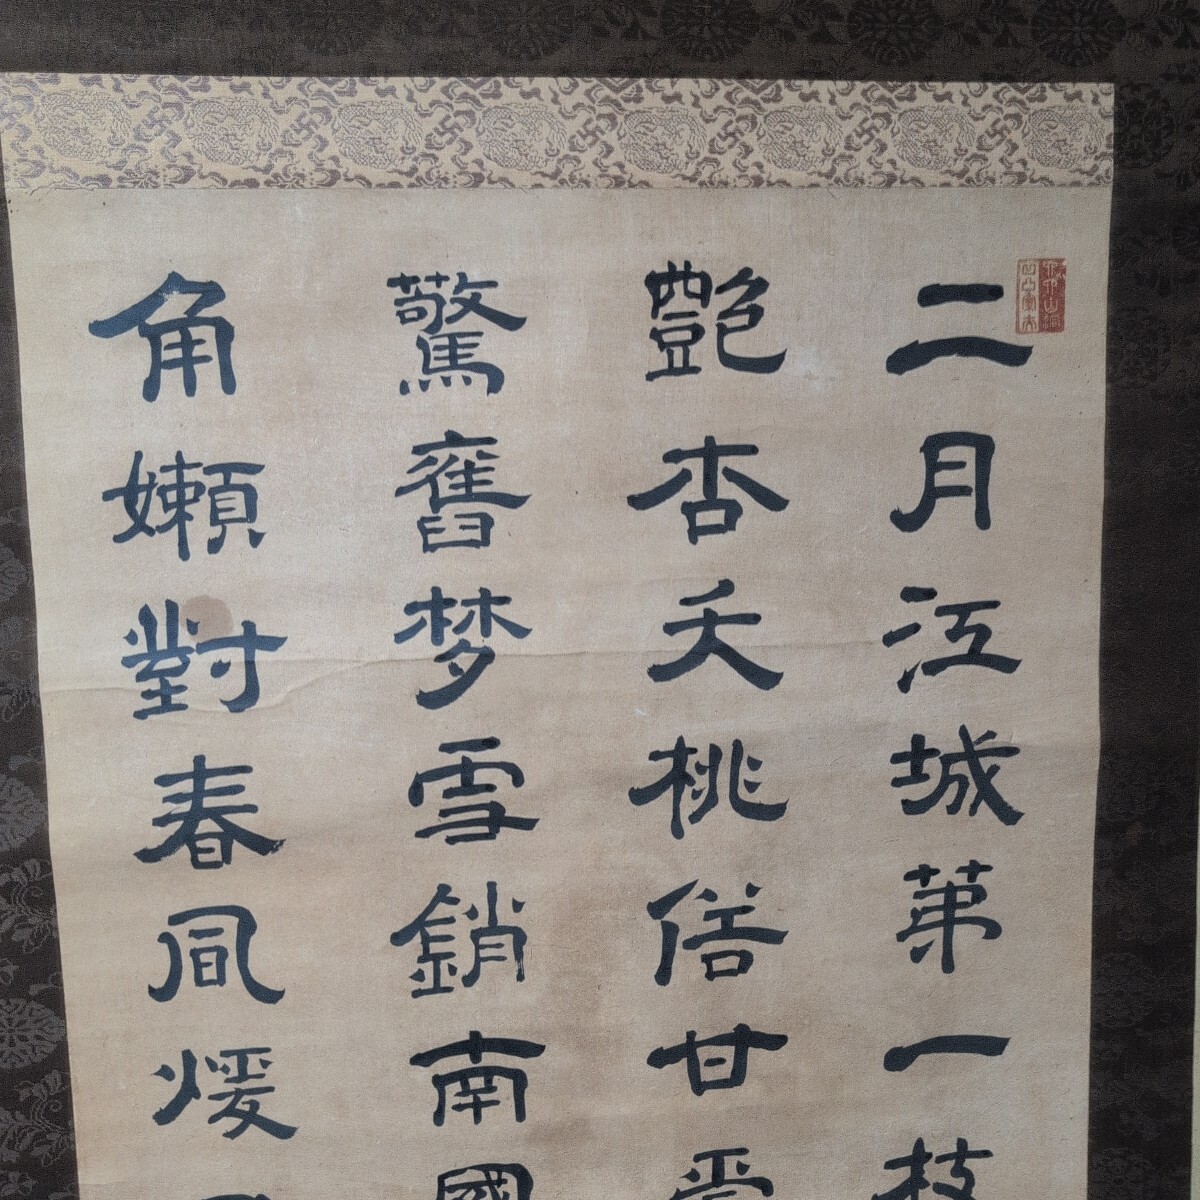 二月江城第一枝
艶杏夭桃甘
驚舊梦雪銷南國
角嬾對春風煖